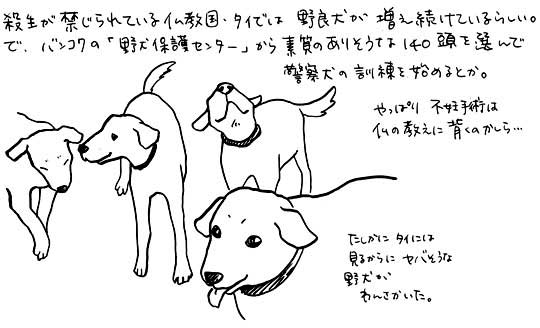 殺生が禁じられている仏教国・タイでは 野良犬が 増え続けているらしい。
で、バンコクの「野犬保護センター」から素質のありそうな140頭を選んで
警察犬の訓練を始めるとか。
やっぱり 不妊手術は
仏の教えに 背くのかしら…
たしかに タイには
見るからに ヤバそうな
野犬が
わんさかいた。